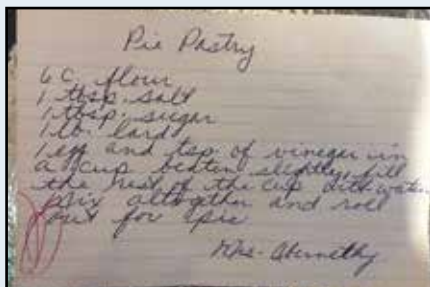 Pie Pastry
6 C. flour
1 tbsp. salt
1 tbsp. sugar
1 lb. lard
1 egg and tsp of vinegar in
a cup beaten slightly, fill
the rest of the cup with water.
Mix altogether and roll
out for pie
Mrs. Abernethy